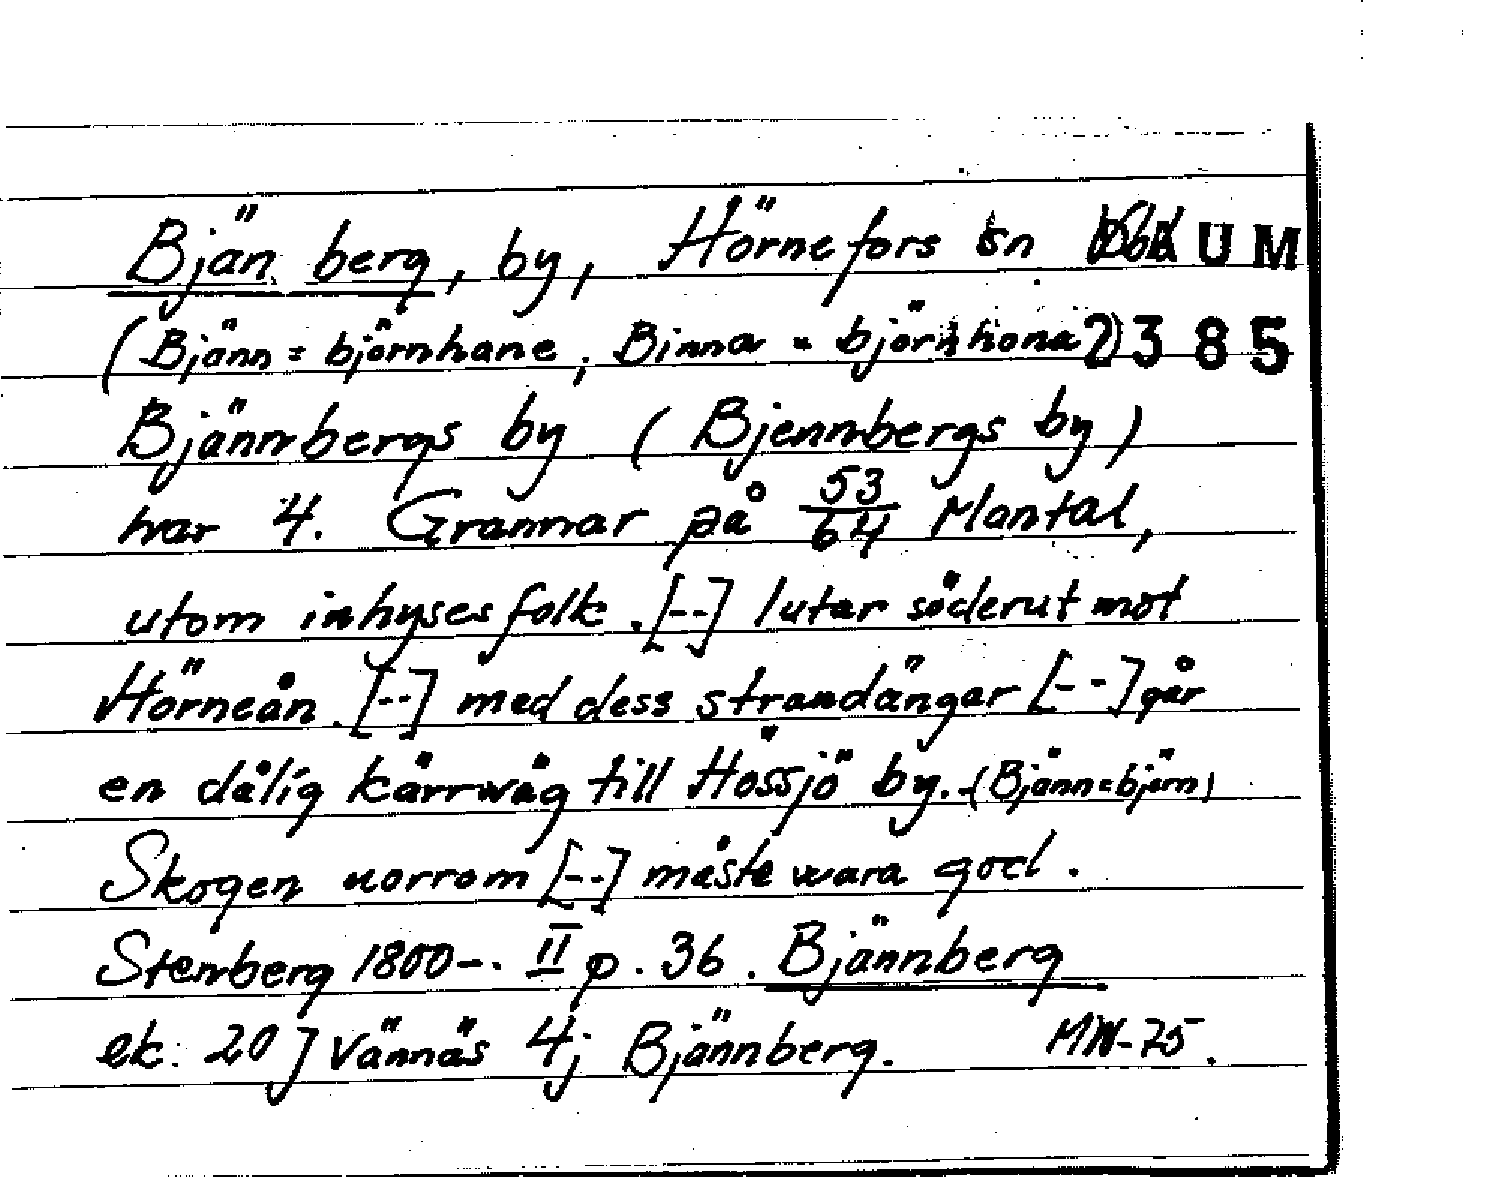 Bjän berg, by, Hörnefors sn UM
(Bjänn = björnhane, Binna = björnhona) 2385
Bjännbergs by (Bjennbergs by)
har 4. Grannar på 53/64 Mantal,
utom inhyses folk. [--] lutar söderut mot
Hörneån. [--] med dess strandängar [--] går
en dålig kärrwäg till Hössjö by. (Bjänn=björn)
Skogen norrom [--] måste wara god.
Stenberg 1800-. II p. 36. Bjännberg
ek: 20 J Vännäs 4j Bjännberg. MW-75.